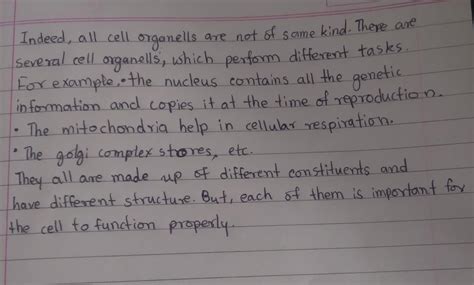 Indeed, all cell organells are not of same kind. There are
several cell organells, which perform different tasks.
For example, • the nucleus contains all the genetic
information and copies it at the time of reproduction.
• The mitochondria help in cellular respiration.
• The golgi complex stores, etc.
They all are made up of different constituents and
have different structure. But, each of them is important for
the cell to function properly.